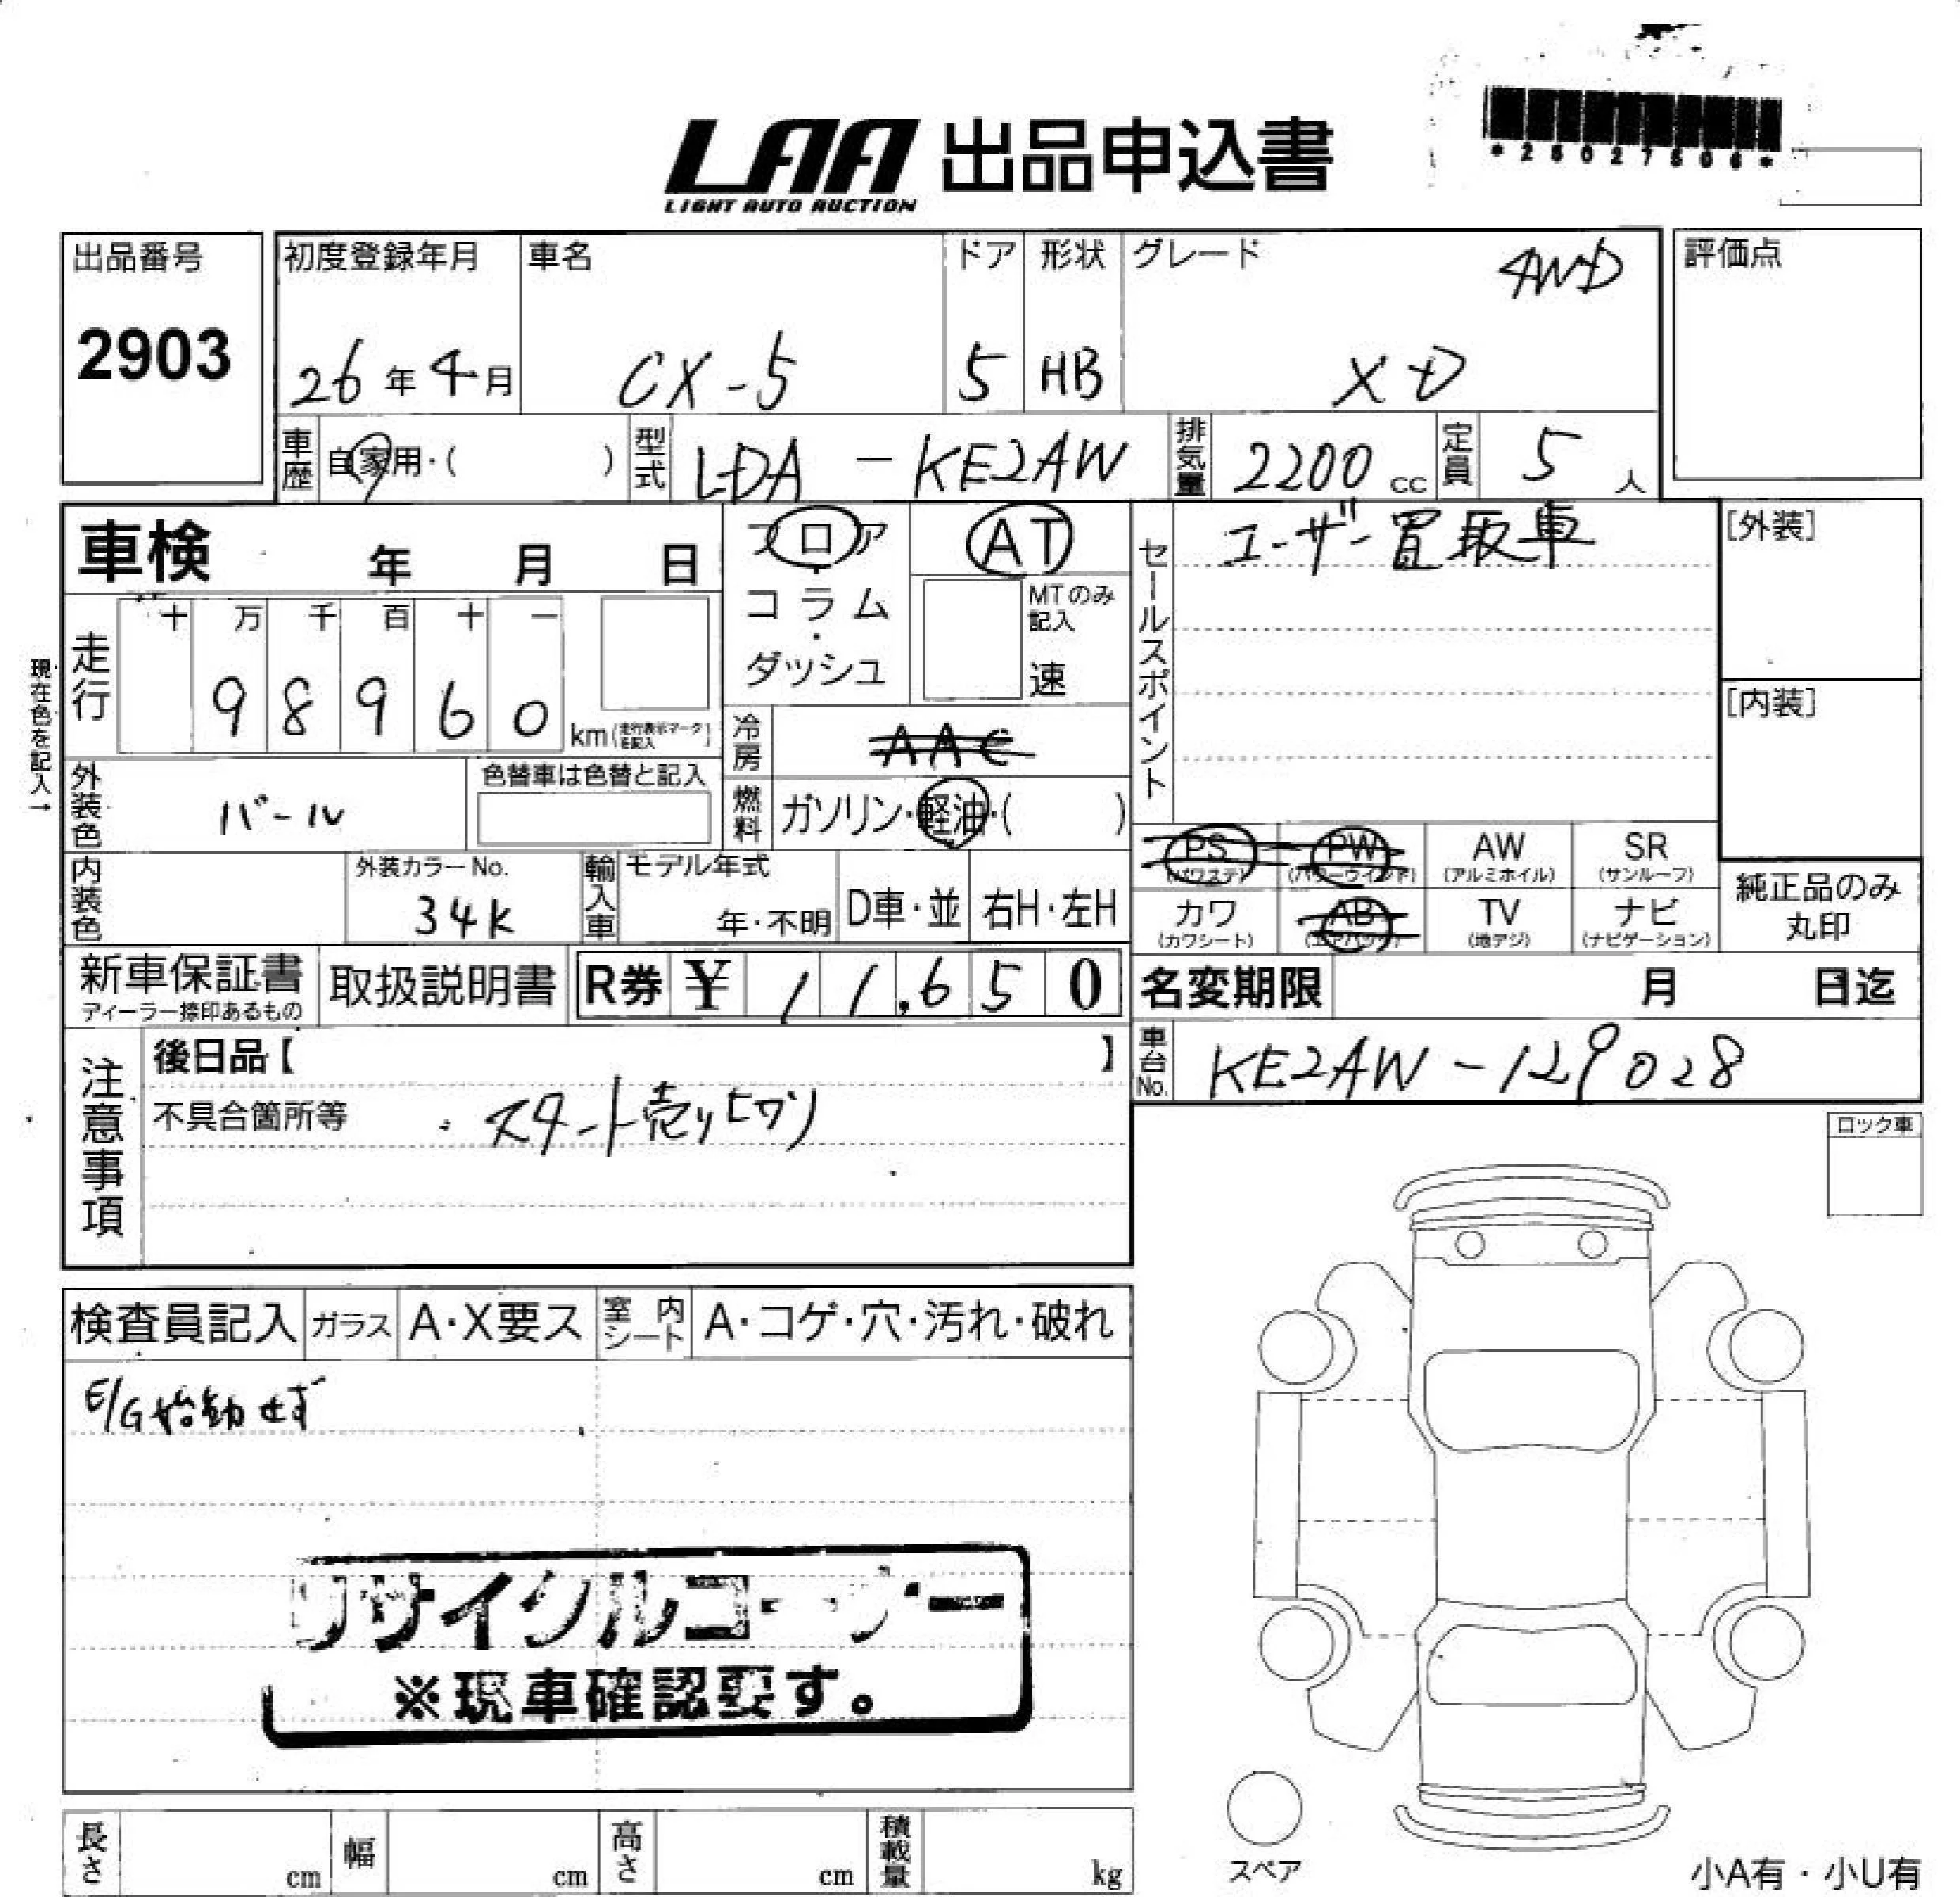 *25027506*
LAA 出品申込書
LIGHT AUTO AUCTION
出品番号 初度登録年月 車名 ドア 形状 グレード 4WD 評価点
2903 26年4月 CX-5 5 HB XD
車歴 自家用・( ) 型式 LDA-KE2AW 排気量 2200cc 定員 5人
車検 年 月 日 フロア AT セールスポイント ユーザー買取車 [外装]
・コラム・ MTのみ記入
ダッシュ 速
走行 十 万 千 百 十 一
98960 km(走行表示マークを記入) [内装]
現在色を記入→
冷房 AAC
外装色 パール 色替車は色替と記入 燃料 ガソリン・軽油・( )
PS(パワステ) PW(パワーウインド) AW(アルミホイル) SR(サンルーフ)
内装色 外装カラーNo. 34K 輸入車 モデル年式 年・不明 D車・並 右H・左H
カワ(カワシート) AB(エアバッグ) TV(地デジ) ナビ(ナビゲーション) 純正品のみ丸印
新車保証書 取扱説明書 R券 ¥ 11,650 名変期限 月 日迄
ディーラー捺印あるもの
注意事項 後日品【 】 車台No. KE2AW-129028
不具合箇所等 ・スタート売り切り
ロック車
検査員記入 ガラス A・X要ス 室内シート A・コゲ・穴・汚れ・破れ
E/G始動せず
リサイクルコーナー
※現車確認要す。
長さ cm 幅 cm 高さ cm 積載量 kg
スペア
小A有・小U有